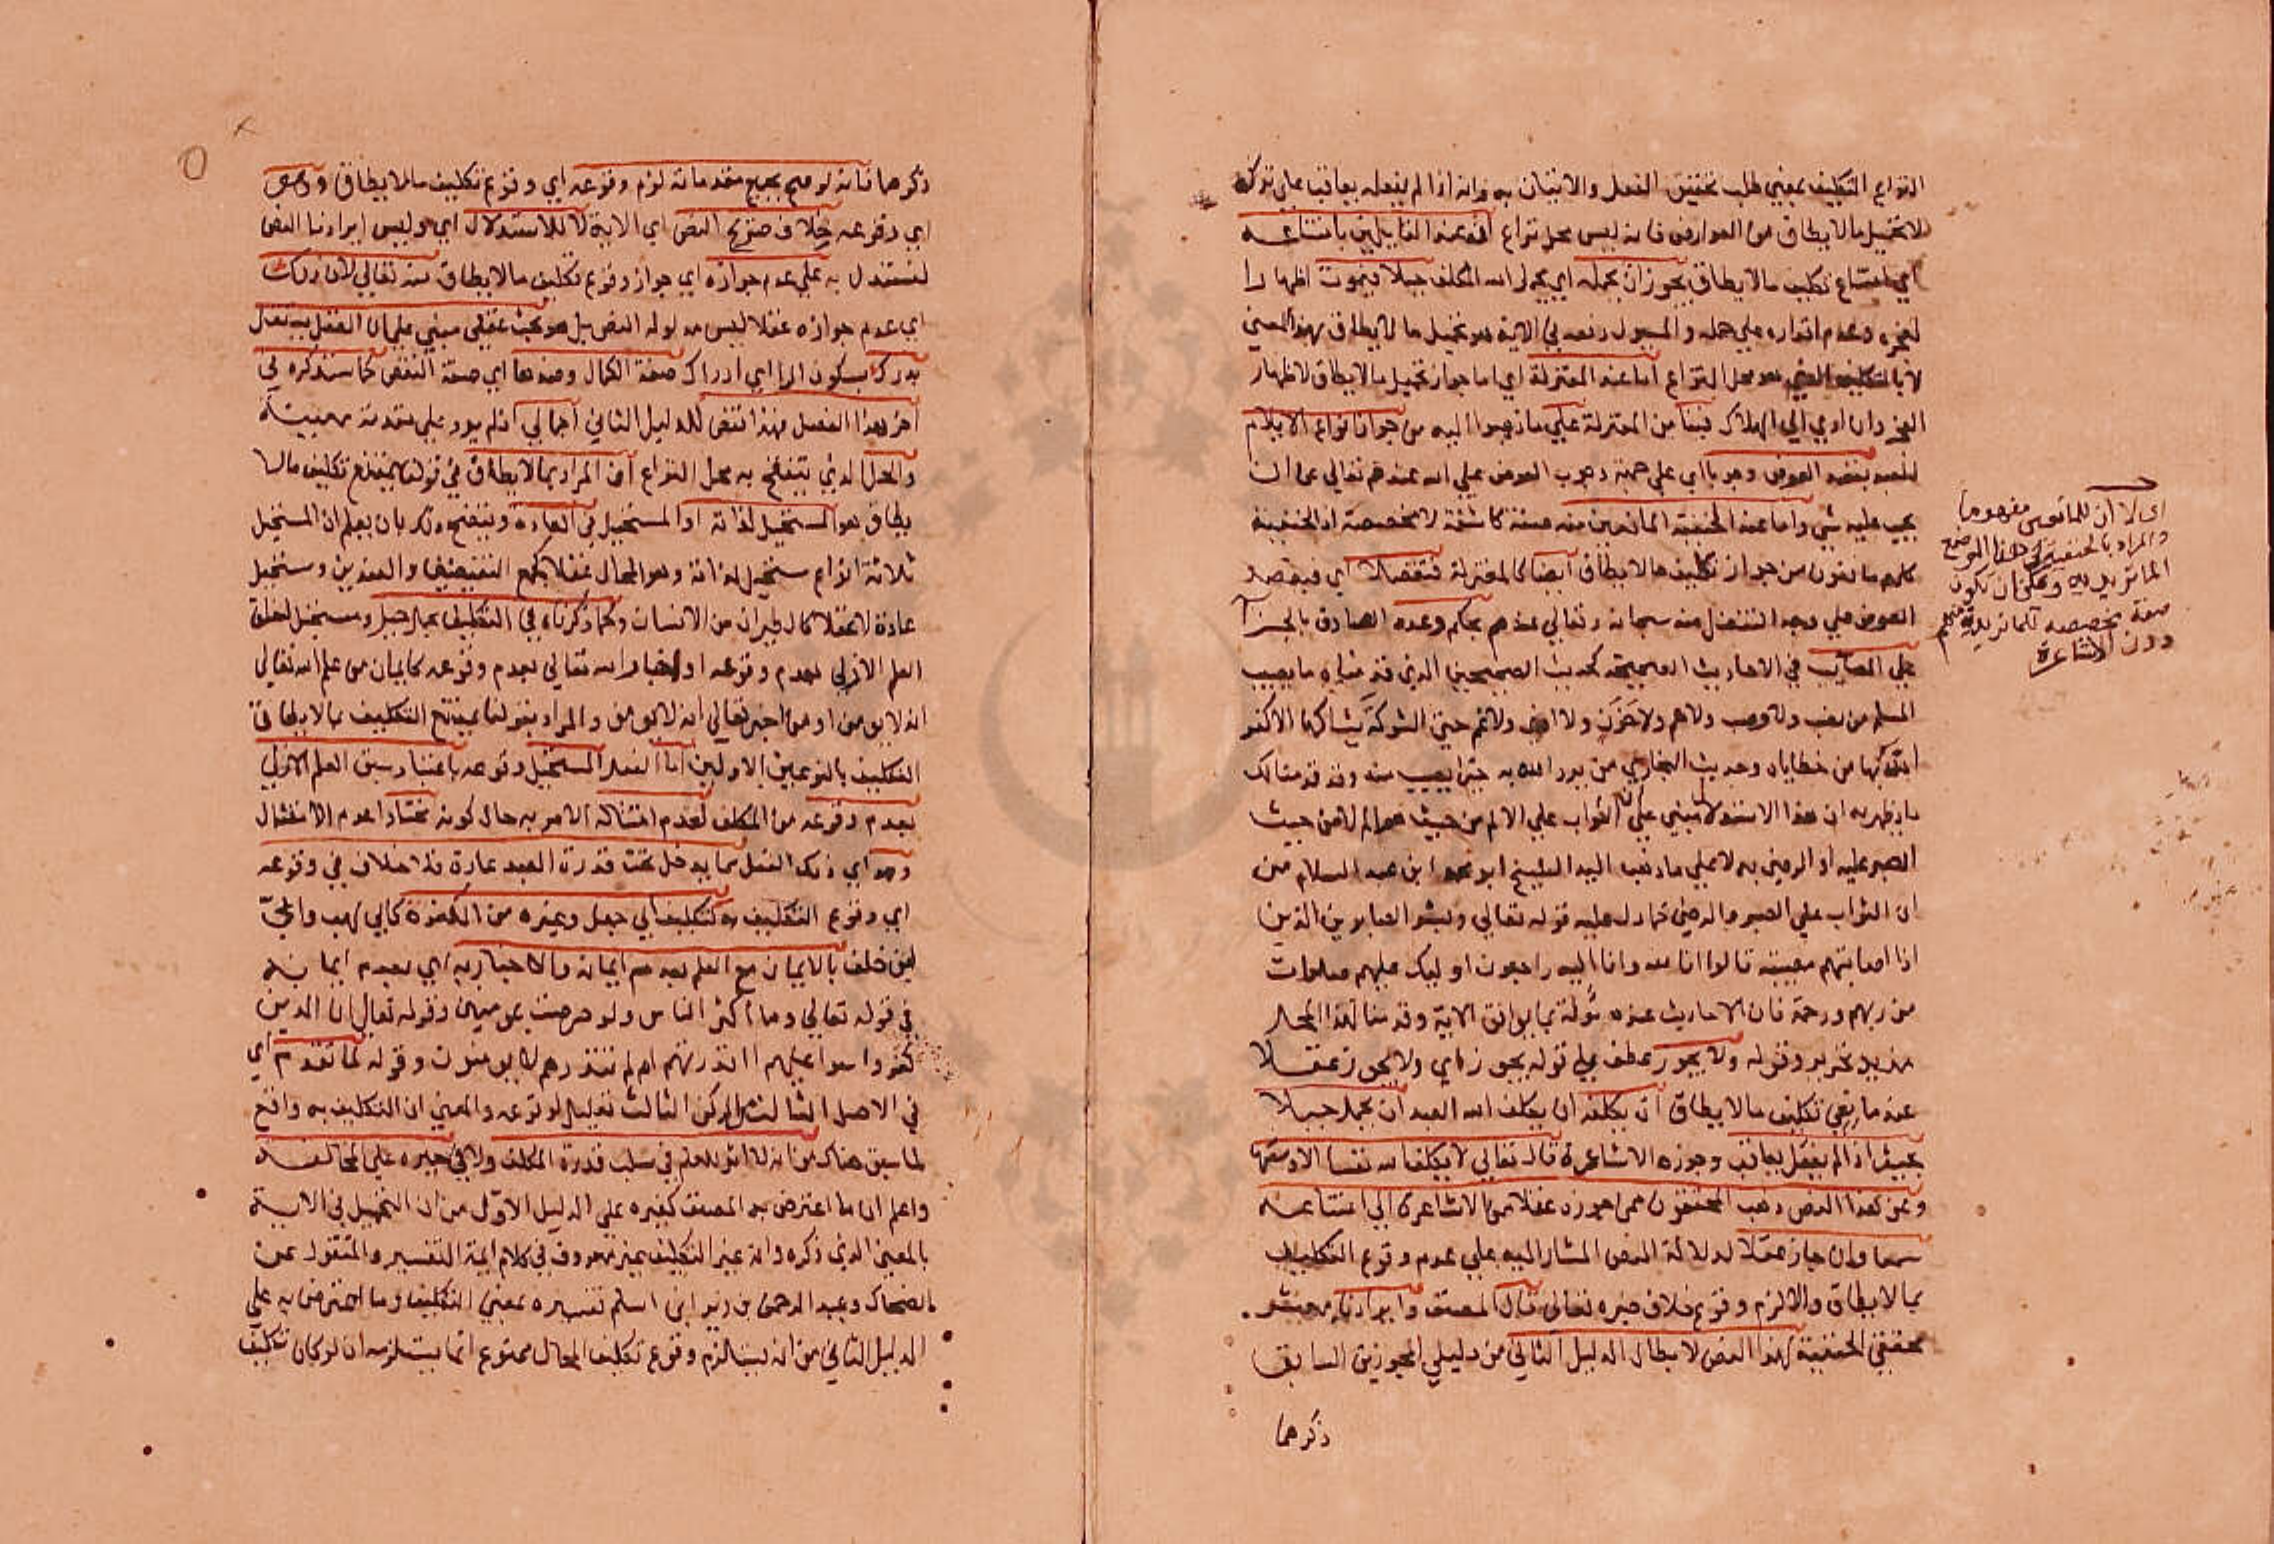 النزاع التكليف بمعني طلب تحقيق الفعل والاتيان به وانه اذا لم يفعله يعاقب علي تركه
لا تحميل مالا يطاق من العوارض فانه ليس محل نزاع اذ عند القايلين بامتناعه
اي امتناع تكليف مالا يطاق يجوز ان يحمله اي يحمل الله المكلف جبلا فيموت اظهارا
لعجزه وعدم اقداره علي حمله والمسؤول دفعه في الاية هو تحميل ما لا يطاق بهذا المعني
لا بالتكليف الذي هو محل النزاع اما عند المعتزلة اي اما جواز تحميل مالا يطاق لاظهار
العجز وان ادي الي الهلاك فبنا من المعتزلة علي ما ذهبوا اليه من جواز انواع الايلام
للعبد بقصد العوض وجوبا اي علي جهة وجوب العوض علي الله عندهم تعالي عن ان
يجب عليه شي واما عند الحنفية المانعين منه صفة كاشفة لا مخصصة اذ الحنفية
كلهم مانعون من جواز تكليف مالا يطاق ايضا كالمعتزلة فتفضلا اي فبقصد
العوض علي وجه التفضل منه سبحانه وتعالي عندهم بحكم وعده الصادق بالجزا
علي المصايب في الاحاديث الصحيحة كحديث الصحيحين الذي قدمناه ما يصيب
المسلم من نصب ولا وصب ولا هم ولا حزن ولا اذي ولا غم حتي الشوكة يشاكها الا كفر
الله بها من خطاياه وحديث البخاري من يرد الله به خيرا يصب منه وقد قدمنا لك
ما يظهر به ان هذا الاستدلال مبني علي ان الثواب علي الالم من حيث هو الم لا من حيث
الصبر عليه او الرضي به لا علي ما ذهب اليه الشيخ ابو محمد ابن عبد السلام من
ان الثواب علي الصبر والرضي كما دل عليه قوله تعالي وبشر الصابرين الذين
اذا اصابتهم مصيبة قالوا انا لله وانا اليه راجعون اوليك عليهم صلوات
من ربهم ورحمة فان الاحاديث عنده مؤولة بما يوافق الاية وقدمنا لهذا المحل
مزيد تحرير وقوله ولا يجوز عطف علي قوله يجوز اي ولا يجوز عقلا
عند مانعي تكليف مالا يطاق ان يكلفه ان يكلف الله العبد ان يحمل جبلا
بحيث اذا لم يفعل يعاقب وجوزه الاشاعرة قال تعالي لا يكلف الله نفسا الا وسعها
وعن هذا النص ذهب المحققون ممن جوزه عقلا من الاشاعرة الي امتناعه
سمعا وان جاز عقلا لدلالة النص المشار اليه علي عدم وقوع التكليف
بما لا يطاق والا لزم وقوع خلاف خبره تعالي قال المصنف وايرادنا معشر
محققي الحنفية لهذا النص لابطال الدليل الثاني من دليلي المجوزين السابق
ذكرهما
اي لا ان للماتن مفهوما
والمراد بالحنفية في هذا الموضع
الماتريديه ويمكن ان يكون
صفة مخصصه كالماتريدية منهم
دون الاشاعرة
ذكرهما فانه لو صح بجميع مقدماته لزم وقوعه اي وقوع تكليف مالا يطاق وهو
اي وقوعه خلاف صريح النص اي الاية لا للاستدلال اي وليس ايرادنا النص
لنستدل به علي عدم جوازه اي جواز وقوع تكليف مالا يطاق منه تعالي لان ذلك
اي عدم جوازه عقلا ليس مدلوله النص بل هو بحث عقلي مبني علي ان العقل يستقل
بدرك بسكون الرا اي ادراك صفة الكمال وضدها اي صفة النقص كما سنذكره في
اخر هذا الفصل فهذا نقض للدليل الثاني اجمالي اذ لم يورد علي مقدمة معينة
والحل الذي يتضح به محل النزاع ان المراد بما لا يطاق في قولنا يمتنع تكليف مالا
يطاق هو المستحيل لذاته او المستحيل في العادة ويتضح ذلك بان يعلم ان المستحيل
ثلاثة انواع مستحيل لذاته وهو المحال عقلا كجمع النقيضين والضدين ومستحيل
عادة لا عقلا كالطيران من الانسان وكما ذكرناه في التكليف بحمل جبل ومستحيل لتعلق
العلم الازلي بعدم وقوعه او اخبار الله تعالي بعدم وقوعه كايمان من علم الله تعالي
انه لا يومن او من اخبر تعالي انه لا يومن والمراد بقولنا يمتنع التكليف بما لا يطاق
التكليف بالنوعين الاولين اما الفعل المستحيل وقوعه باعتبار سبق العلم الازلي
بعدم وقوعه من المكلف لعدم امتثاله الامر به حال كونه مختارا عدم الامتثال
وهو اي ذلك الفعل مما يدخل تحت قدرة العبد عادة فلا خلاف في وقوعه
اي وقوع التكليف به كتكليف ابي جهل وغيره من الكفرة كابي لهب وابيّ
ابن خلف بالايمان مع العلم بعدم ايمانه والاخبار به اي بعدم ايمانه
في قوله تعالي وما اكثر الناس ولو حرصت بمومنين وقوله تعالي ان الذين
كفروا سوا عليهم اانذرتهم ام لم تنذرهم لا يومنون وقوله لما تقدم اي
في الاصل الثالث من الركن الثالث تعليل لوقوعه والمعني ان التكليف به واقع
لما سبق هناك من انه لا اثر للعلم في سلب قدرة المكلف ولا في جبره علي المخالفة
واعلم ان ما اعترض به المصنف كغيره علي الدليل الاول من ان التحميل في الاية
بالمعني الذي ذكره وانه غير التكليف غير معروف في كلام ايمة التفسير والمنقول عن
الضحاك وعبد الرحمن بن زيد ابن اسلم تفسيره بمعني التكليف وما اعترض به علي
الدليل الثاني من انه يستلزم وقوع تكليف المحال ممنوع انما يستلزمه ان لو كان تكليف